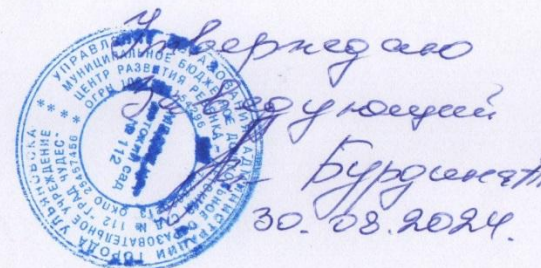 Утверждаю
Заведующий
Бурдина
30.08.2024.
УПРАВЛЕНИЕ ОБРАЗОВАНИЯ АДМИНИСТРАЦИИ ГОРОДА УЛЬЯНОВСКА
МУНИЦИПАЛЬНОЕ БЮДЖЕТНОЕ ДОШКОЛЬНОЕ ОБРАЗОВАТЕЛЬНОЕ УЧРЕЖДЕНИЕ
ЦЕНТР РАЗВИТИЯ РЕБЕНКА - ДЕТСКИЙ САД № 112 "ГРАД ЧУДЕС"
ОГРН
ОКПО
детский сад
№ 112